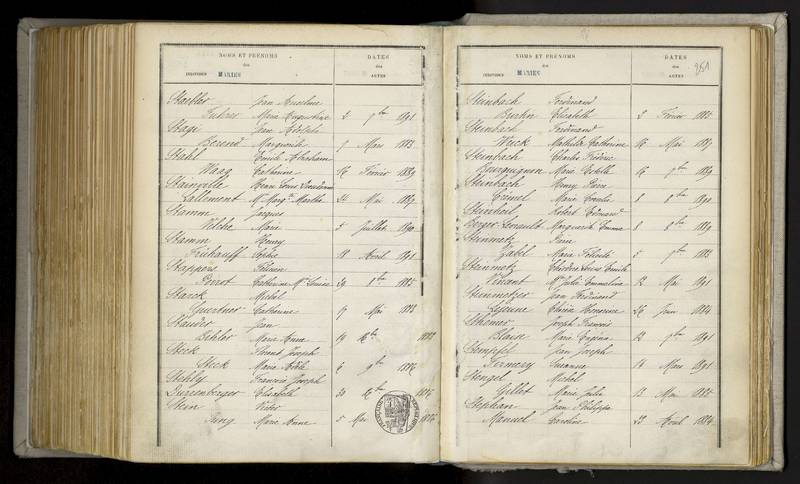 NOMS ET PRÉNOMS
des
INDIVIDUS MARIÉS
DATES
des
ACTES
Staebler Jean Anselme
Marie Augustine 2 7bre 1891
Stage Jean Adolphe
Berend Marguerite 1 Mars 1883
Stahl Emile Abraham
Waag Catherine 16 Février 1889
Stainville Jean Louis
Lallement Mie Margte Marthe 24 Mai 1889
Stamm Jacques
Marie 5 Juillet 1890
Stamm Henry
Frühauff Sophie 18 Avril 1891
Stappers
Perrot Catherine Me Louise 29 8bre 1885
Starck Michel
Guertner Catherine 17 Mai 1888
Stauder Jean
Marie Anne 19 Xbre 1882
Steck Joseph
Steck Marie Adèle 6 9bre 1886
Stehly François Joseph
Durrenberger Elisabeth 30 Xbre
Stein Victor
Jung Marie Anne 5 Mai
NOMS ET PRÉNOMS
des
INDIVIDUS MARIÉS
DATES
des
ACTES
251
Steinbach Ferdinand
Buhn Elisabeth 3 Février 1885
Steinbach Ferdinand
Weick Mathilde Catherine 16 Mai 1887
Steinbach Charles Frédéric
Bourguignon Marie Estelle 16 9bre 1889
Steinbach Henry Pierre
Marie 8 8bre 1890
Steinheil Robert Edouard
Berger-Levrault Marguerite Emma 8 8bre 1889
Steinmetz Pierre
Zabel Marie Félicité 5 7bre 1883
Steinmetz Théodore Louis Emile
Vincent Me Julie Emmeline 12 Mai 1891
Steinmetzer Jean Ferdinand
Lejeune Maria Honorine 26 Juin 1884
Joseph Francis
Blaise Marie Eugénie 12 9bre 1891
Stempfel Jean Joseph
Kermery Suzanne 14 Mars 1891
Stengel Michel
Gillot Marie Julie 13 Mai 1885
Stephan Jean Philippe
Manuel Caroline 23 Avril 1884